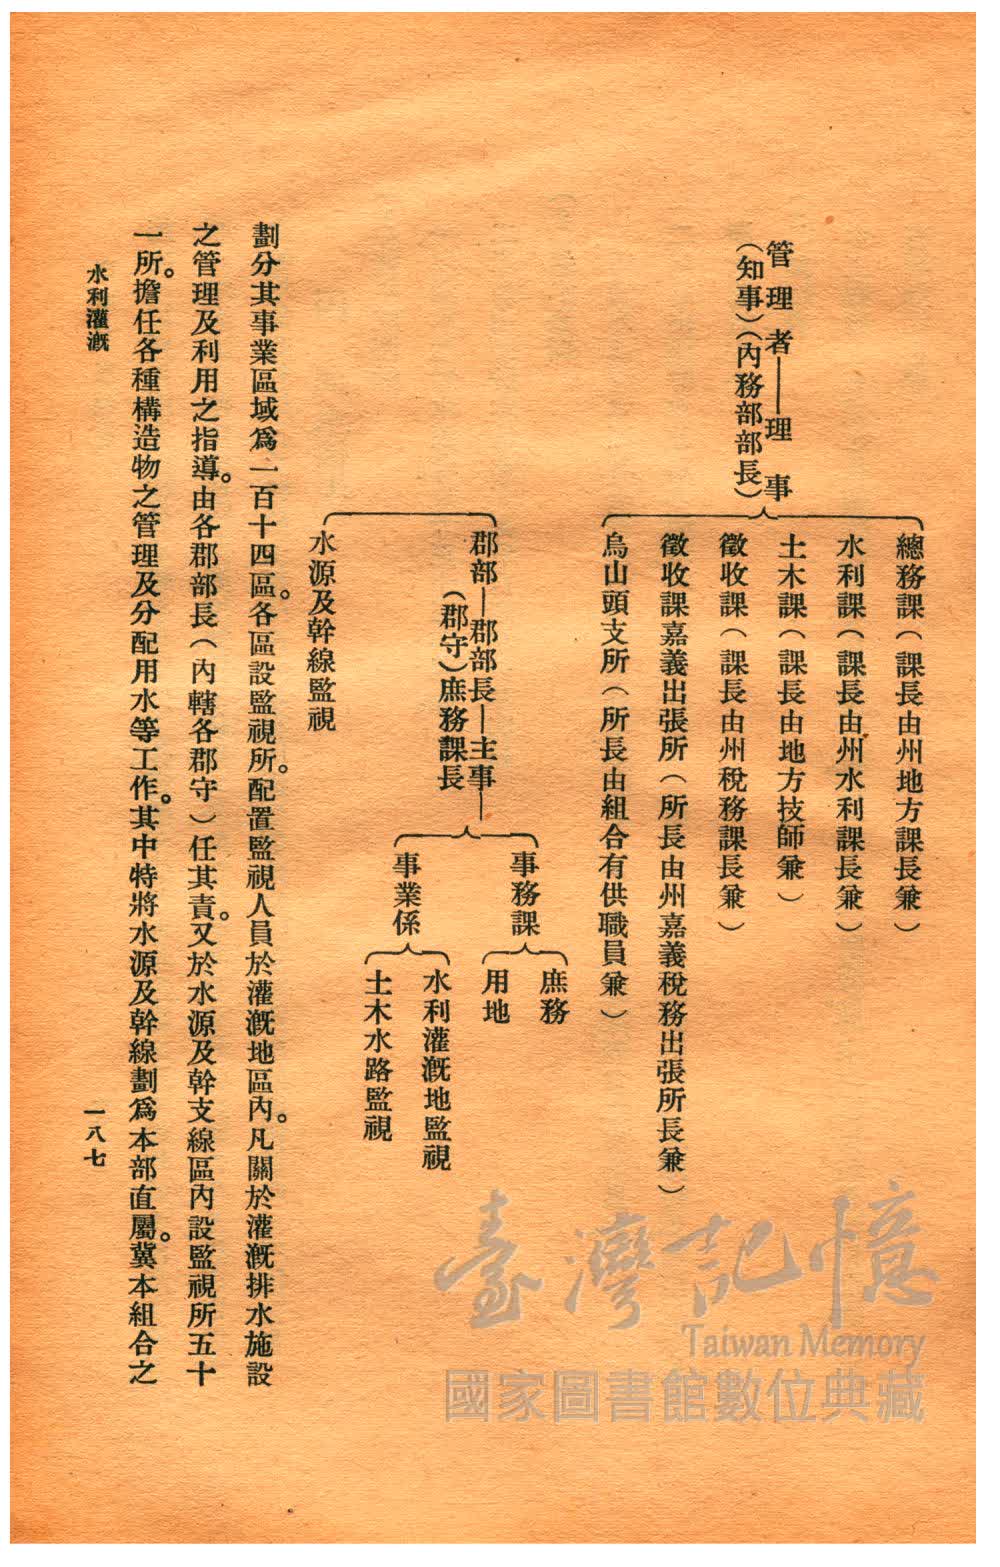 管理者—理事
（知事）（內務部部長）
總務課（課長由州地方課長兼）
水利課（課長由州水利課長兼）
土木課（課長由地方技師兼）
徵收課（課長由州稅務課長兼）
徵收課嘉義出張所（所長由州嘉義稅務出張所長兼）
烏山頭支所（所長由組合有供職員兼）
郡部—郡部長—主事—
（郡守）庶務課長
事務課
庶務
用地
事業係
水利灌漑地監視
土木水路監視
水源及幹線監視
劃分其事業區域爲一百十四區。各區設監視所。配置監視人員於灌漑地區內。凡關於灌漑排水施設
之管理及利用之指導。由各郡部長（內轄各郡守）任其責。又於水源及幹支線區內設監視所五十
一所。擔任各種構造物之管理及分配用水等工作。其中特將水源及幹線劃爲本部直屬。冀本組合之
水利灌漑
一八七
臺灣記憶
Taiwan Memory
國家圖書館數位典藏